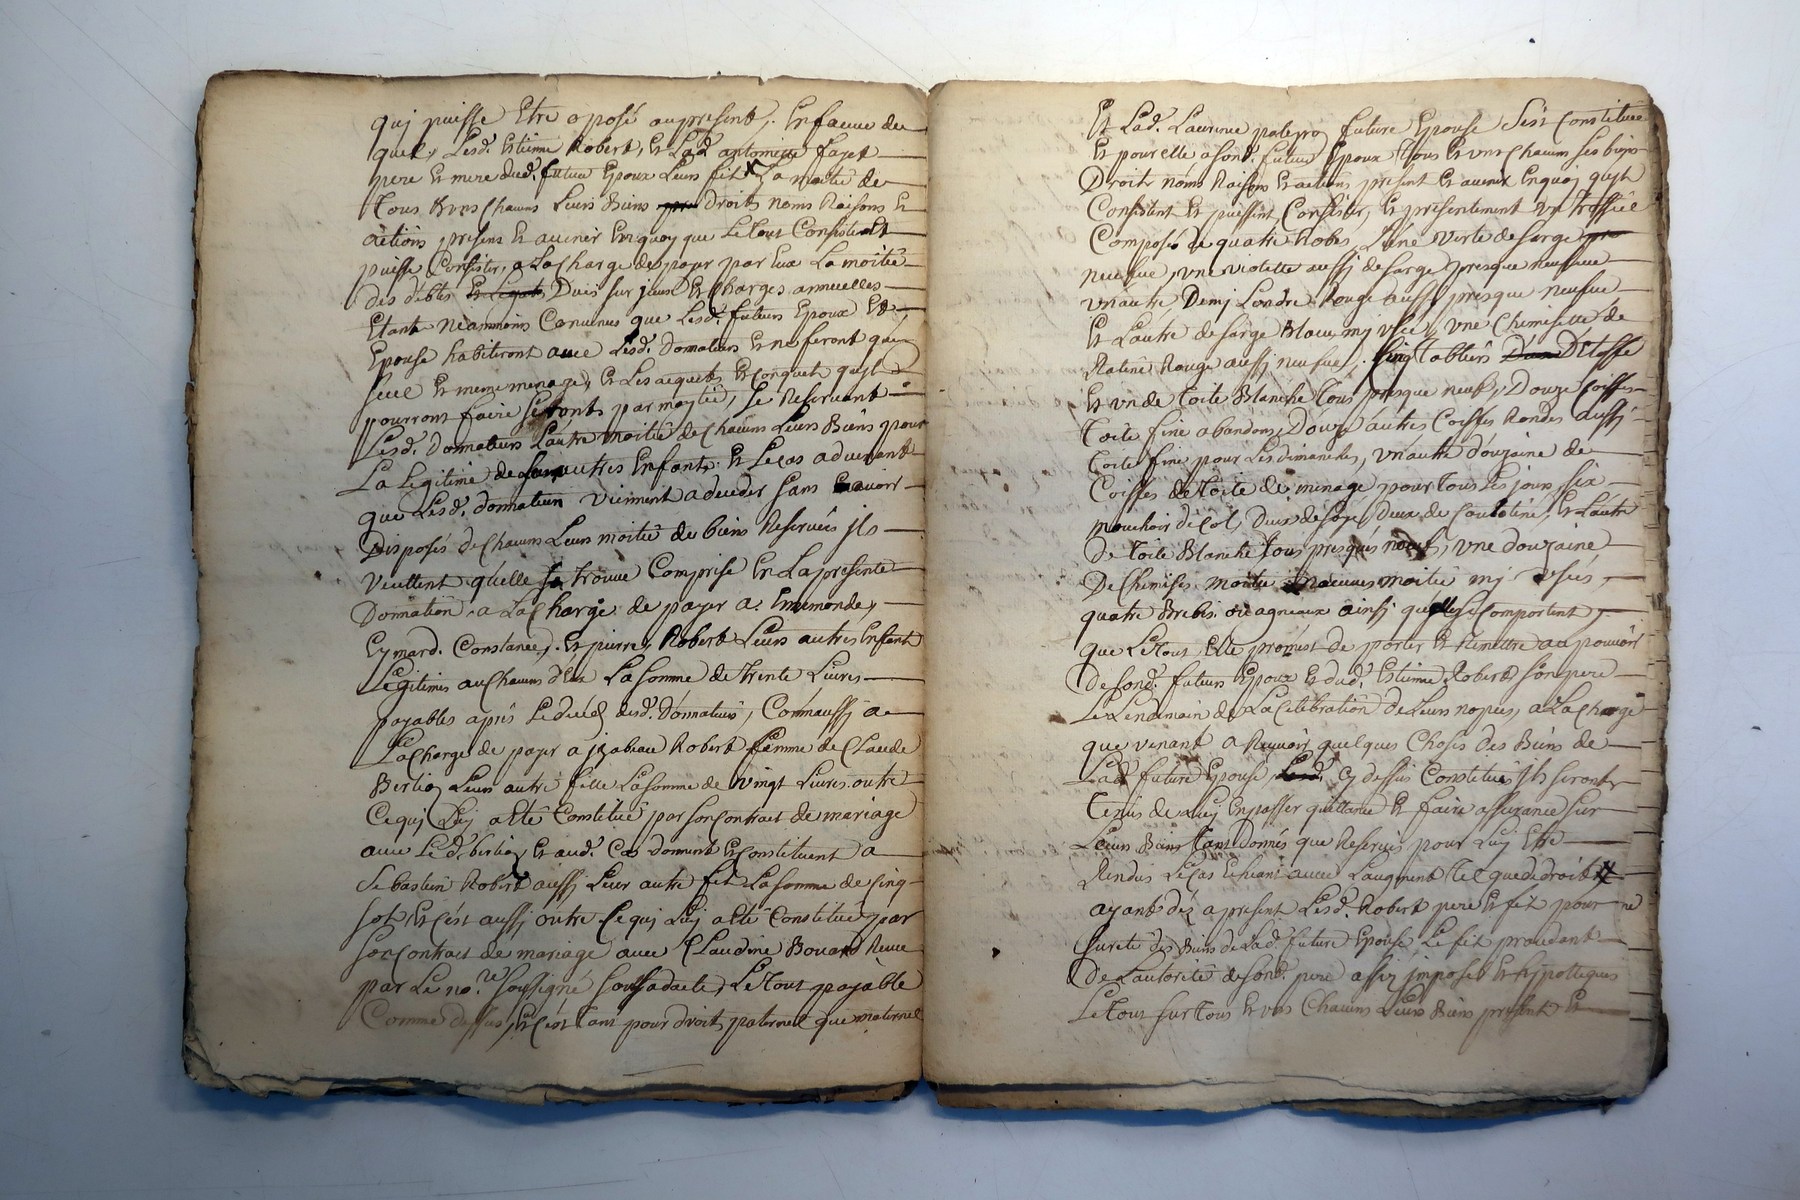 quj puisse Etre oposé aupresent, Enfaueur du
quel, Lesd. Estienne Robert, Et Lad. antoinette fayet
pere Et mere dud. futur Epoux Leur fit La moitié de
Tous Et vns Chacuns Leurs Biens droits noms Raisons Et
actions presens Et auenir En quoy que Le tout Consiste Et
puisse Consister, a La Charge de payer par Eux La moitié
des debtes Et Legats Dues sur jceux Et Charges annuelles
Etant Neanmoins Conuenus que Lesd. futurs Epoux Et
Epouse habiteront auec Lesd. Donnateurs Et ne feront qun
seul Et meme menage, Et Les acquets Et Conquets quils
pourront faire seront par moytié, se Reseruant
Lesd. Donnateurs L'autre moitié de Chacuns Leurs Biens pour
La Legitime de Leurs autres Enfants Et Le cas aduenant
que Lesd. donnateurs viennent a deceder sans auoir
Disposés de Chacuns Leurs moitié de biens Reserués jls
Veullent quelle se trouue Comprise En La presente
Donnation a La Charge de payer a Enemonde,
Eymard. Constance, Et pierre, Robert Leurs autres Enfants
Legitimes au Chacuns d'Eux La somme de trente Liures
payables aprés Le decés desd. Donnateurs, Comm'aussj a
La Charge de payer a jzabeau Robert femme de Claude
Berlioz Leur autre fille La somme de vingt Liures outre
Cequj Luj a eté Constitué par son Contrait de mariage
auec Le d. berlioz Et aud. Cas donnent Et Constituent a
Sebastien Robert aussj Leur autre fit La somme de Cinq
sols Et C'est aussj outre Cequj Luj a eté Constitué par
son Contrait de mariage auec Claudine Bouard Receu
par Le no.re soussigné sous sadacte, Le tout payable
Comme dessus, Et C'est tant pour droit paternel que maternel
Et Lad. Laurence future Epouse s'est Constituée
Et pour elle a sond. futur Epoux Tous Et vns Chacuns ses biens
Droits noms Raisons Et actions present Et auenir En quoy quils
Consistent Et puissent Consister, Et presentement vn trossiel
Composé de quatre Robes, L'une verte de sarge
neufue vne violette aussj de sarge presque neufue
vn autre Demj Londre Rouge aussj presque neufue
Et L'autre de sarge Blaue mj vsée, vne Chemisette de
Ratine Rouge aussj neufue, Cinq Tabliers D'Etoffe
Et vn de Toile Blanche tous presque neufs, Douze Coiffes
Toile fine abandons, Douze d'autres Coiffes Rondes aussj
toile fine pour Les dimanches, vn autre d'ouzaine de
Coiffes de toile de menage pour tous Les jours six
mouchoir de Col, deux de soye, deux de Coutoline, Et L'autre
De toile Blanche tous presque neufs, vne douzaine
De Chemises moitié neuues moitié mj vsées,
quatre Brebis ou agneaux ainsj quelles se Comportent,
que Le tout Elle promet de porter Et Remettre au pouuoir
De sond. futur Epoux Et dud. Estienne Robert son pere
Le Lendemain de La Celebration de Leurs nopces, a La Charge
que venant a Receuoir quelques Choses des Biens de
Lad. future Epouse, Cy dessus Constitués jls seront
Tenus de Luj En passer quittance Et faire assurance sur
Leurs Biens Tant Donnés que Reserués pour Luj Etre
Rendus Le Cas Echeant auec L'augment Tel que de droit
ayants dés apresent Lesd. Robert pere Et fit pour
sureté des Biens de Lad. future Epouse Le fit procedant
De L'autorité de sond. pere assis jmposé Et hypotequés
Le tout sur Tous Et vns Chacuns Leurs Biens presents Et